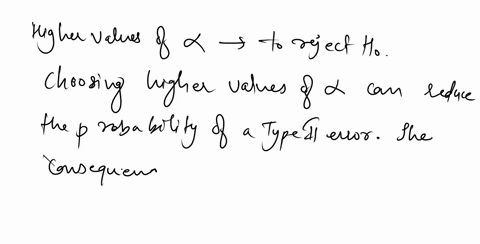 Higher values of α → to reject H₀.
Choosing higher values of α can reduce
the probability of a Type II error. The
consequen